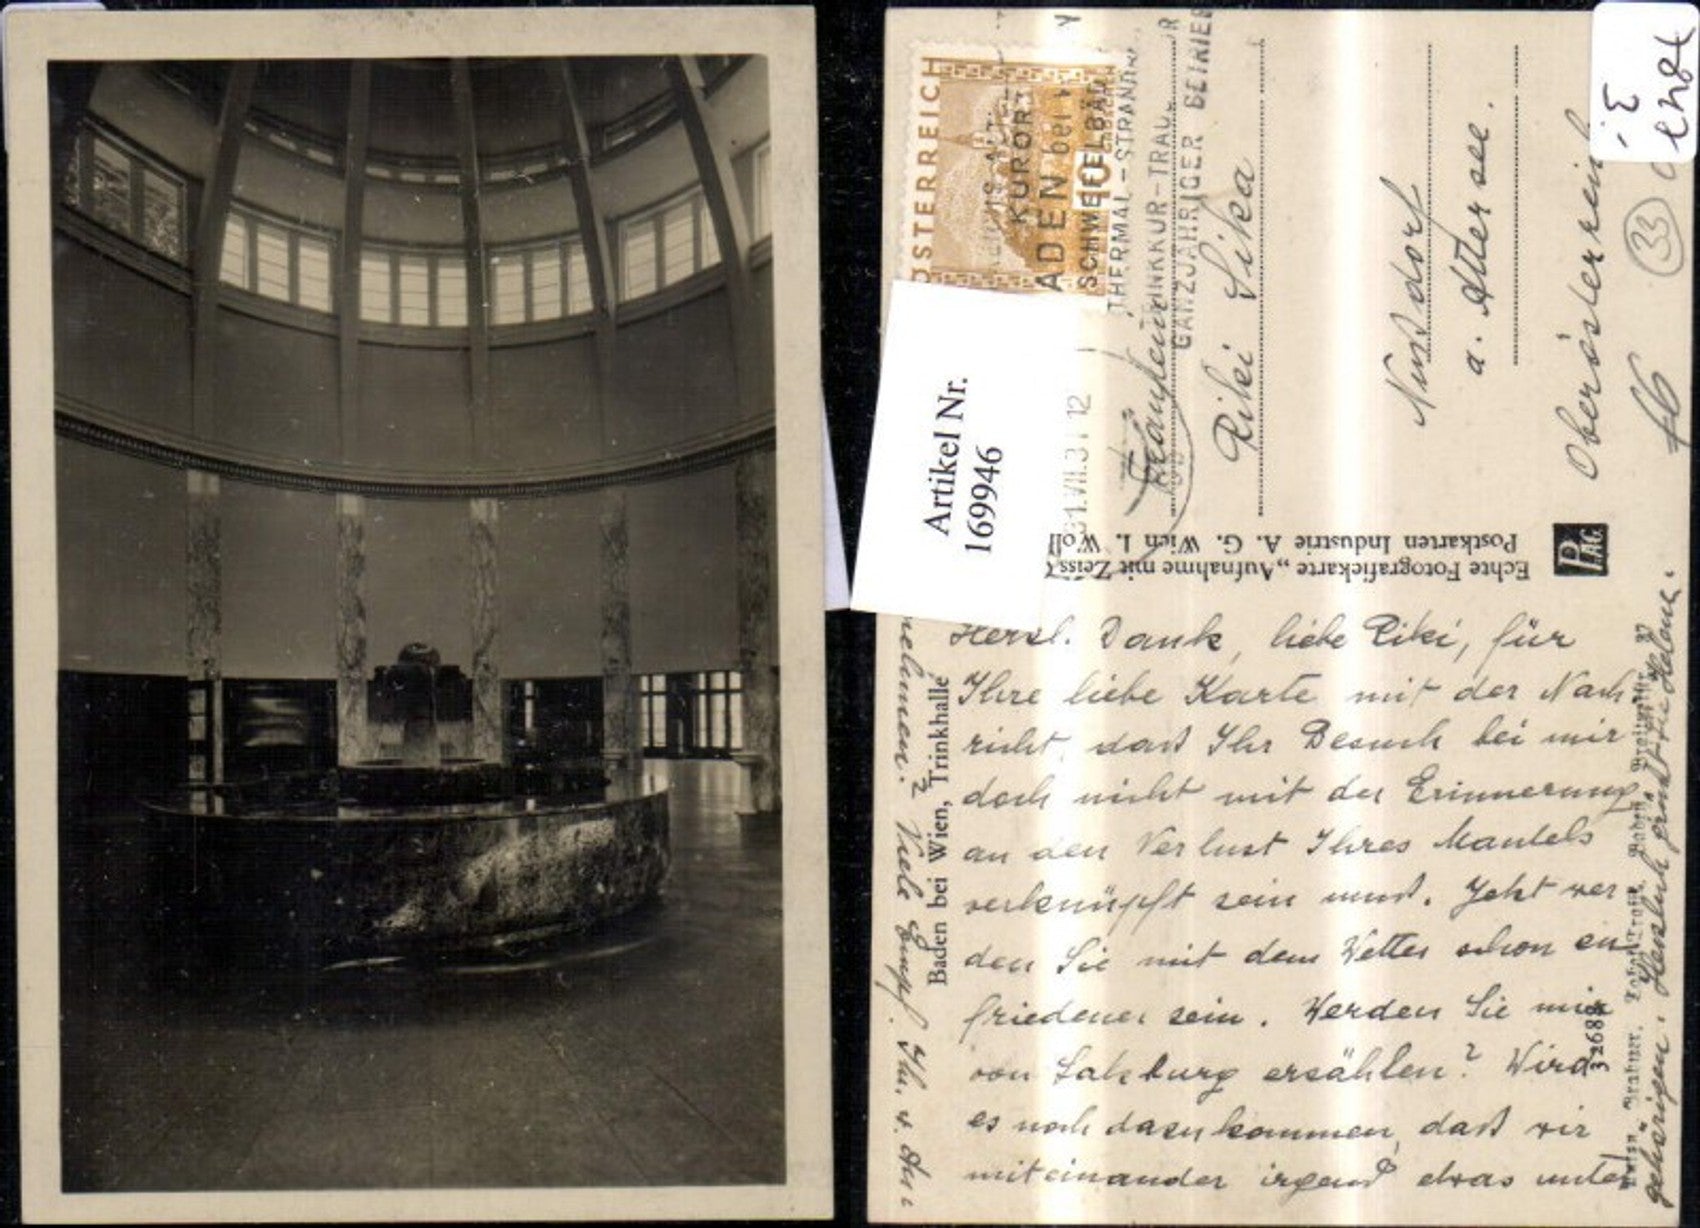 ÖSTERREICH
KURORT
ADEN bei
SCHWEFELBAD
THERMAL-STRAND
TRINKKUR-TRAU
GANZJÄHRIGER BETRIEB
31.VII.31 12
Artikel Nr.
169946
Fräulein
Riki Sika
Nußdorf
a. Attersee.
Oberösterreich
33
Echte Fotografiekarte „Aufnahme mit Zeiss
Postkarten Industrie A. G. Wien I. Woll
PAG
Herzl. Dank, liebe Riki, für
Ihre liebe Karte mit der Nach
richt, daß Ihr Besuch bei mir
doch nicht mit der Erinnerung
an den Verlust Ihres Mantels
verknüpft sein muß. Jetzt wer
den Sie mit dem Wetter schon zu
friedener sein. Werden Sie mir
von Salzburg erzählen? Wird
es noch dazu kommen, daß wir
miteinander irgend etwas unter
nehmen? Viele Empf. Ihr. v. An
gehörigen. Herzlich grüßt Sie Helene.
Baden bei Wien, Trinkhalle
32688